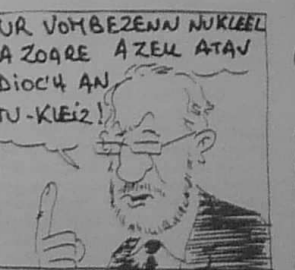 UR VOMBEZENN NUKLEEL
A ZOARE AZEU ATAV
DIOC'H AN
TU-KLEIZ!